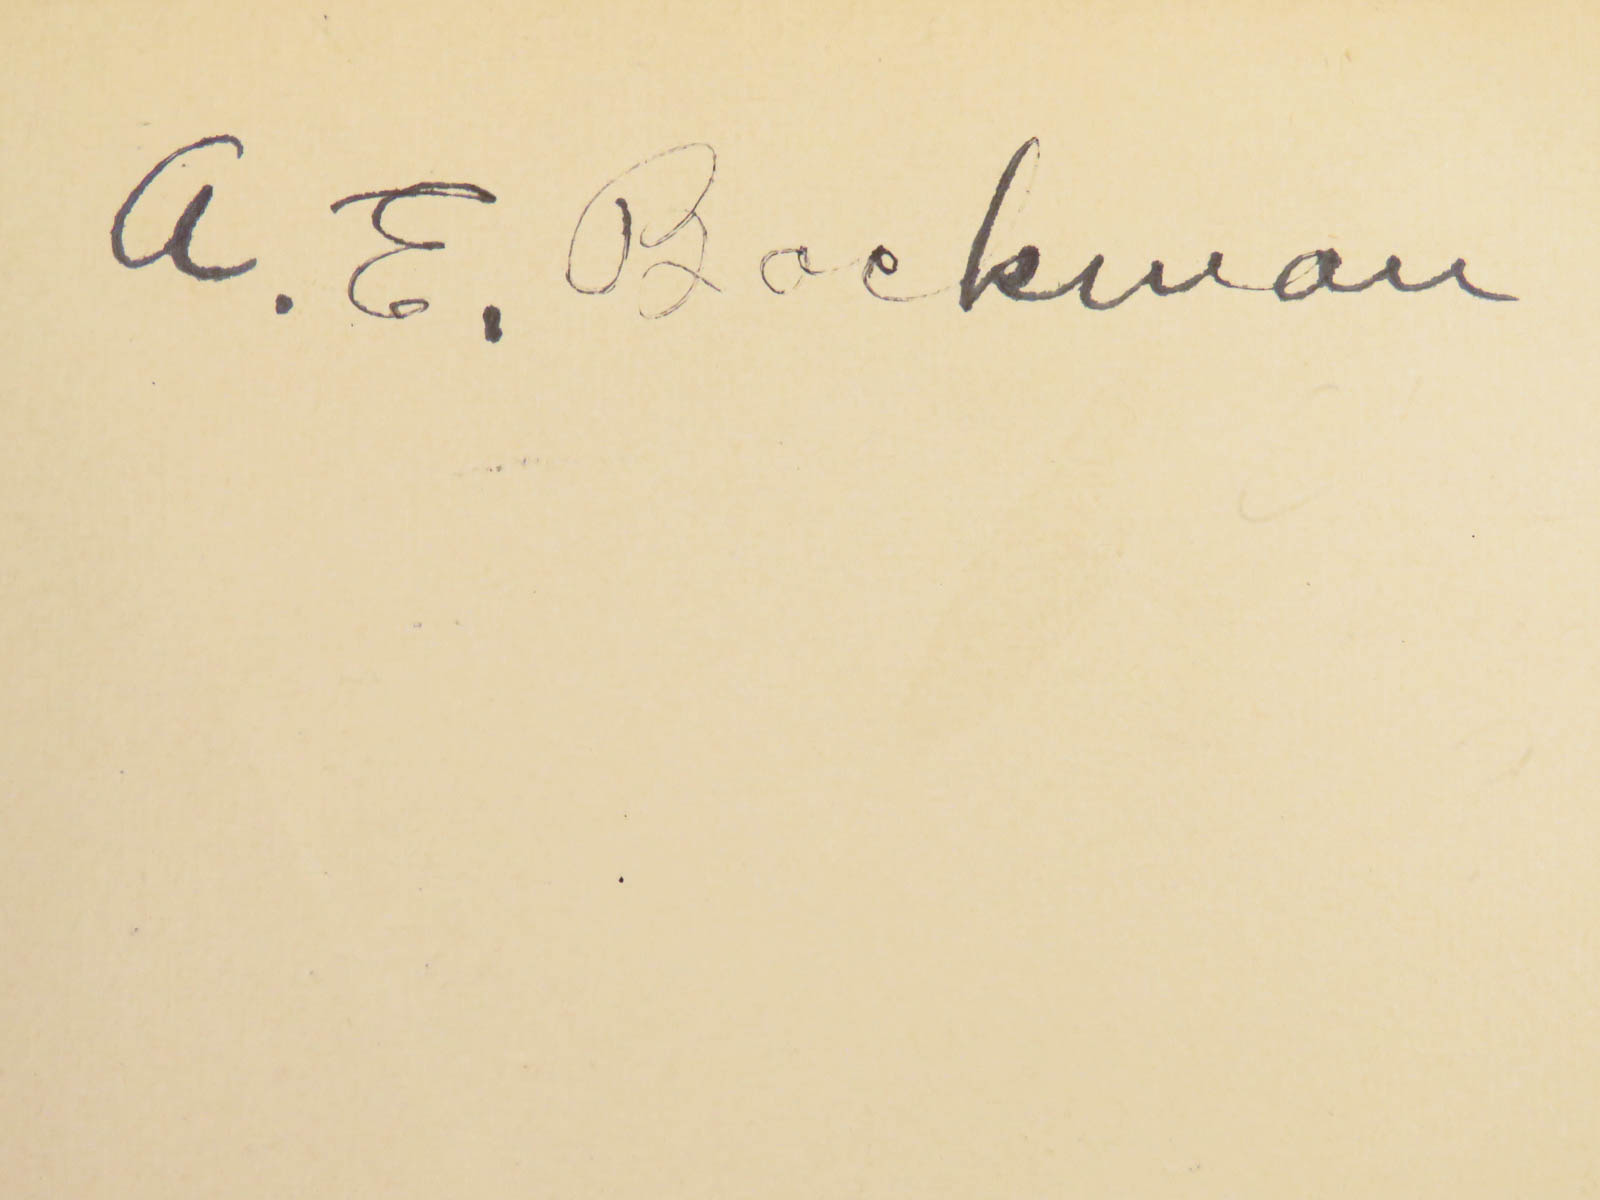 A. E. Bockman